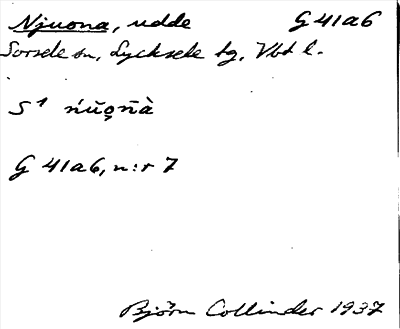 Njuona, udde G 41a6
Sorsele sn, Lycksele tg, Vbd l.
S¹ ńŭo̧n̄à
G 41a6, n:r 7
Björn Collinder 1937